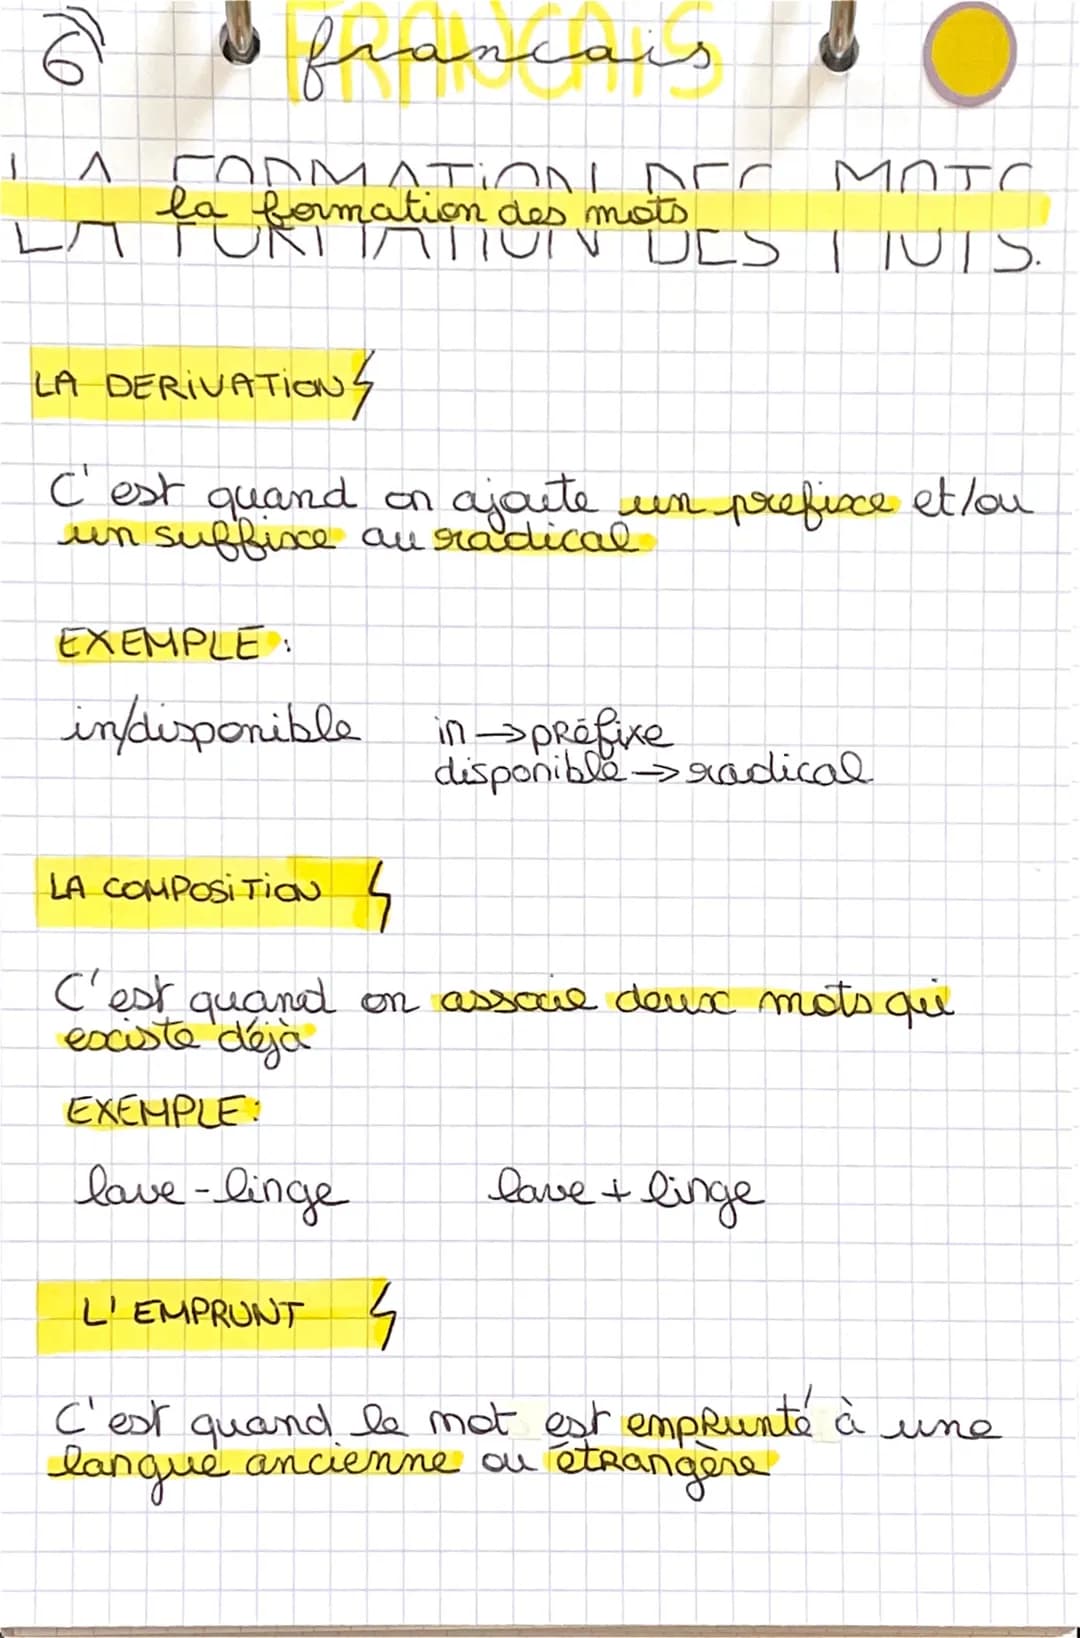 6)
FRANCAIS
francais
LA FORMATION DES MOTS.
la formation des mots
LA DERIVATION
C'est quand on ajoute un prefixe et/ou
un suffixe au radical
EXEMPLE :
in/disponible in → préfixe
disponible → radical
LA COMPOSITION
C'est quand on associe deux mots qui
existe déjà
EXEMPLE:
lave-linge lave + linge
L'EMPRUNT
C'est quand le mot est emprunté à une
langue ancienne ou étrangère